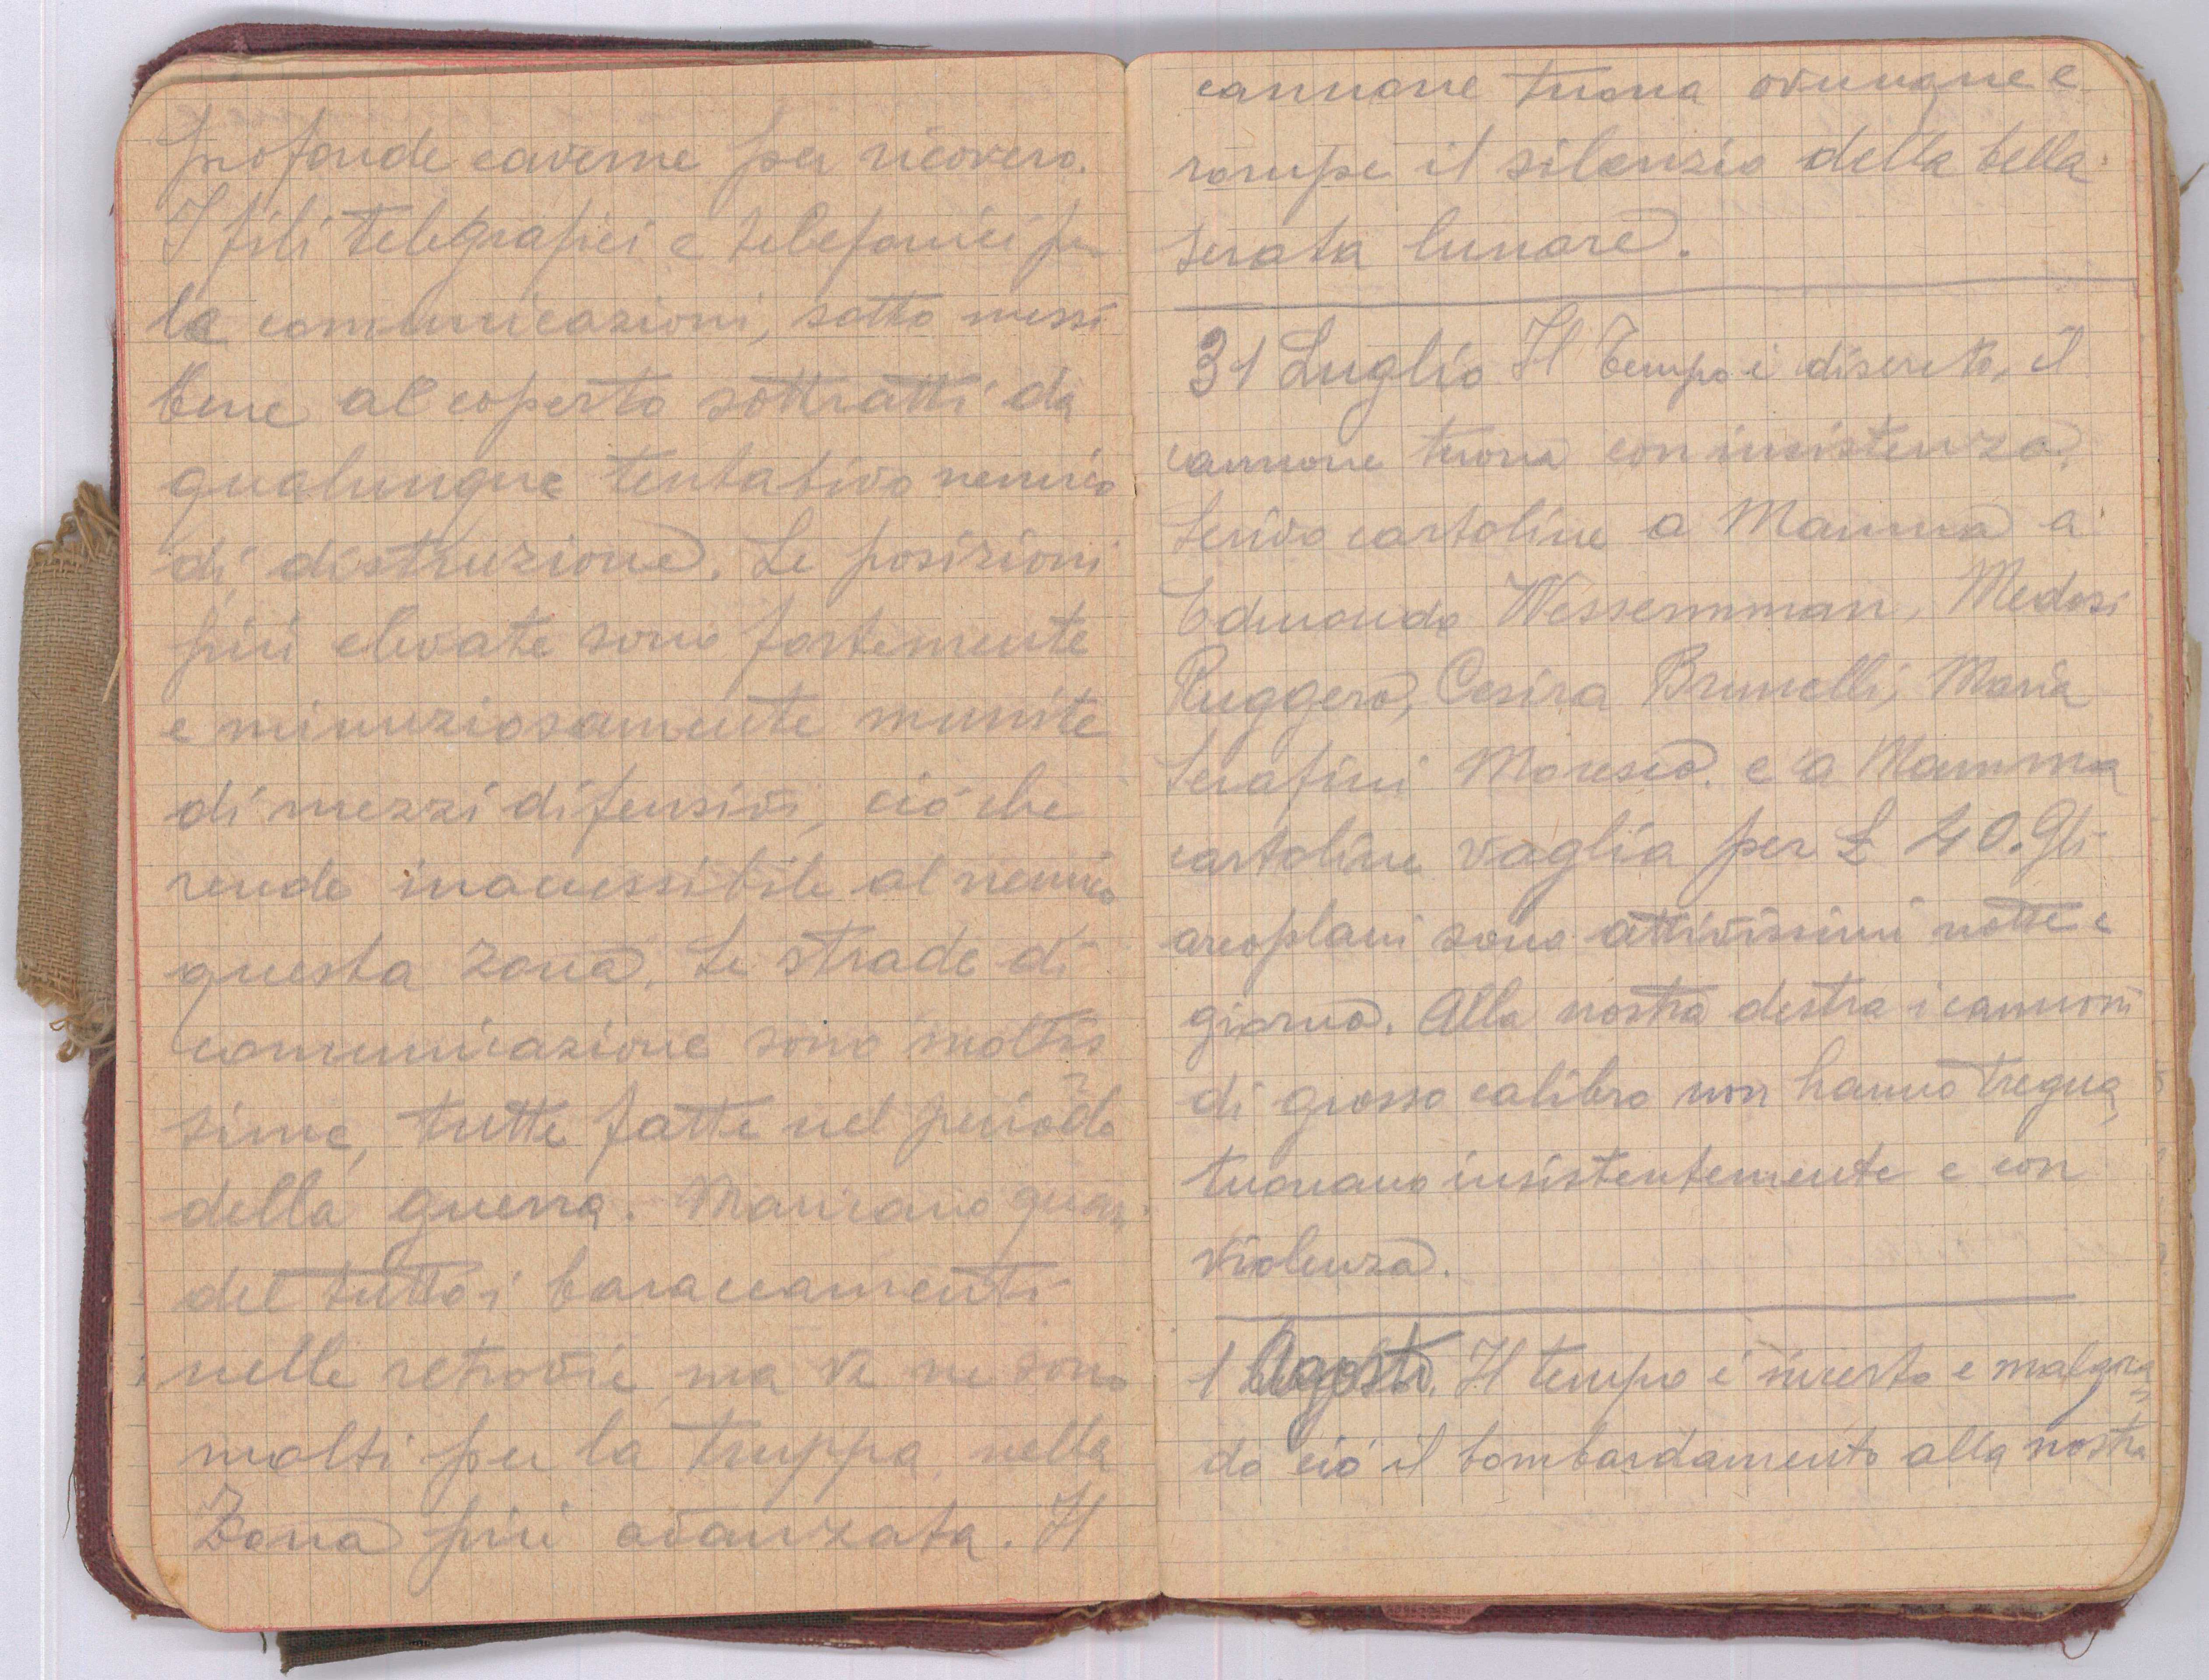 profonde caverne per ricovero.
I fili telegrafici e telefonici per
le comunicazioni, sotto messi
bene al coperto sottratti da
qualunque tentativo nemico
di distruzione. Le posizioni
più elevate sono fortemente
e minuziosamente munite
di mezzi difensivi, ciò che
rende inaccessibile al nemico
questa zona. Le strade di
comunicazione sono moltis
sime, tutte fatte nel periodo
della guerra. Mancano quasi
del tutto i baraccamenti
nelle retrovie, ma ve ne sono
molti per la truppa, nella
Zona più avanzata. Il
cannone tuona ovunque e
rompe il silenzio della bella
serata lunare.
31 Luglio Il Tempo è discreto, il
cannone tuona con insistenza.
Scrivo cartoline a Mamma a
Edmondo Wessemman, Medosi
Ruggero, Cesira Brunelli, Maria
Serafini Moresco. e a Mamma
cartoline vaglia per £ 40. Gli
areoplani sono attivissimi notte e
giorno. Alla nostra destra i cannoni
di grosso calibro non hanno tregua,
tuonano insistentemente e con
violenza.
1 Agosto. Il tempo è incerto e malgra=
do ciò il bombardamento alla nostra